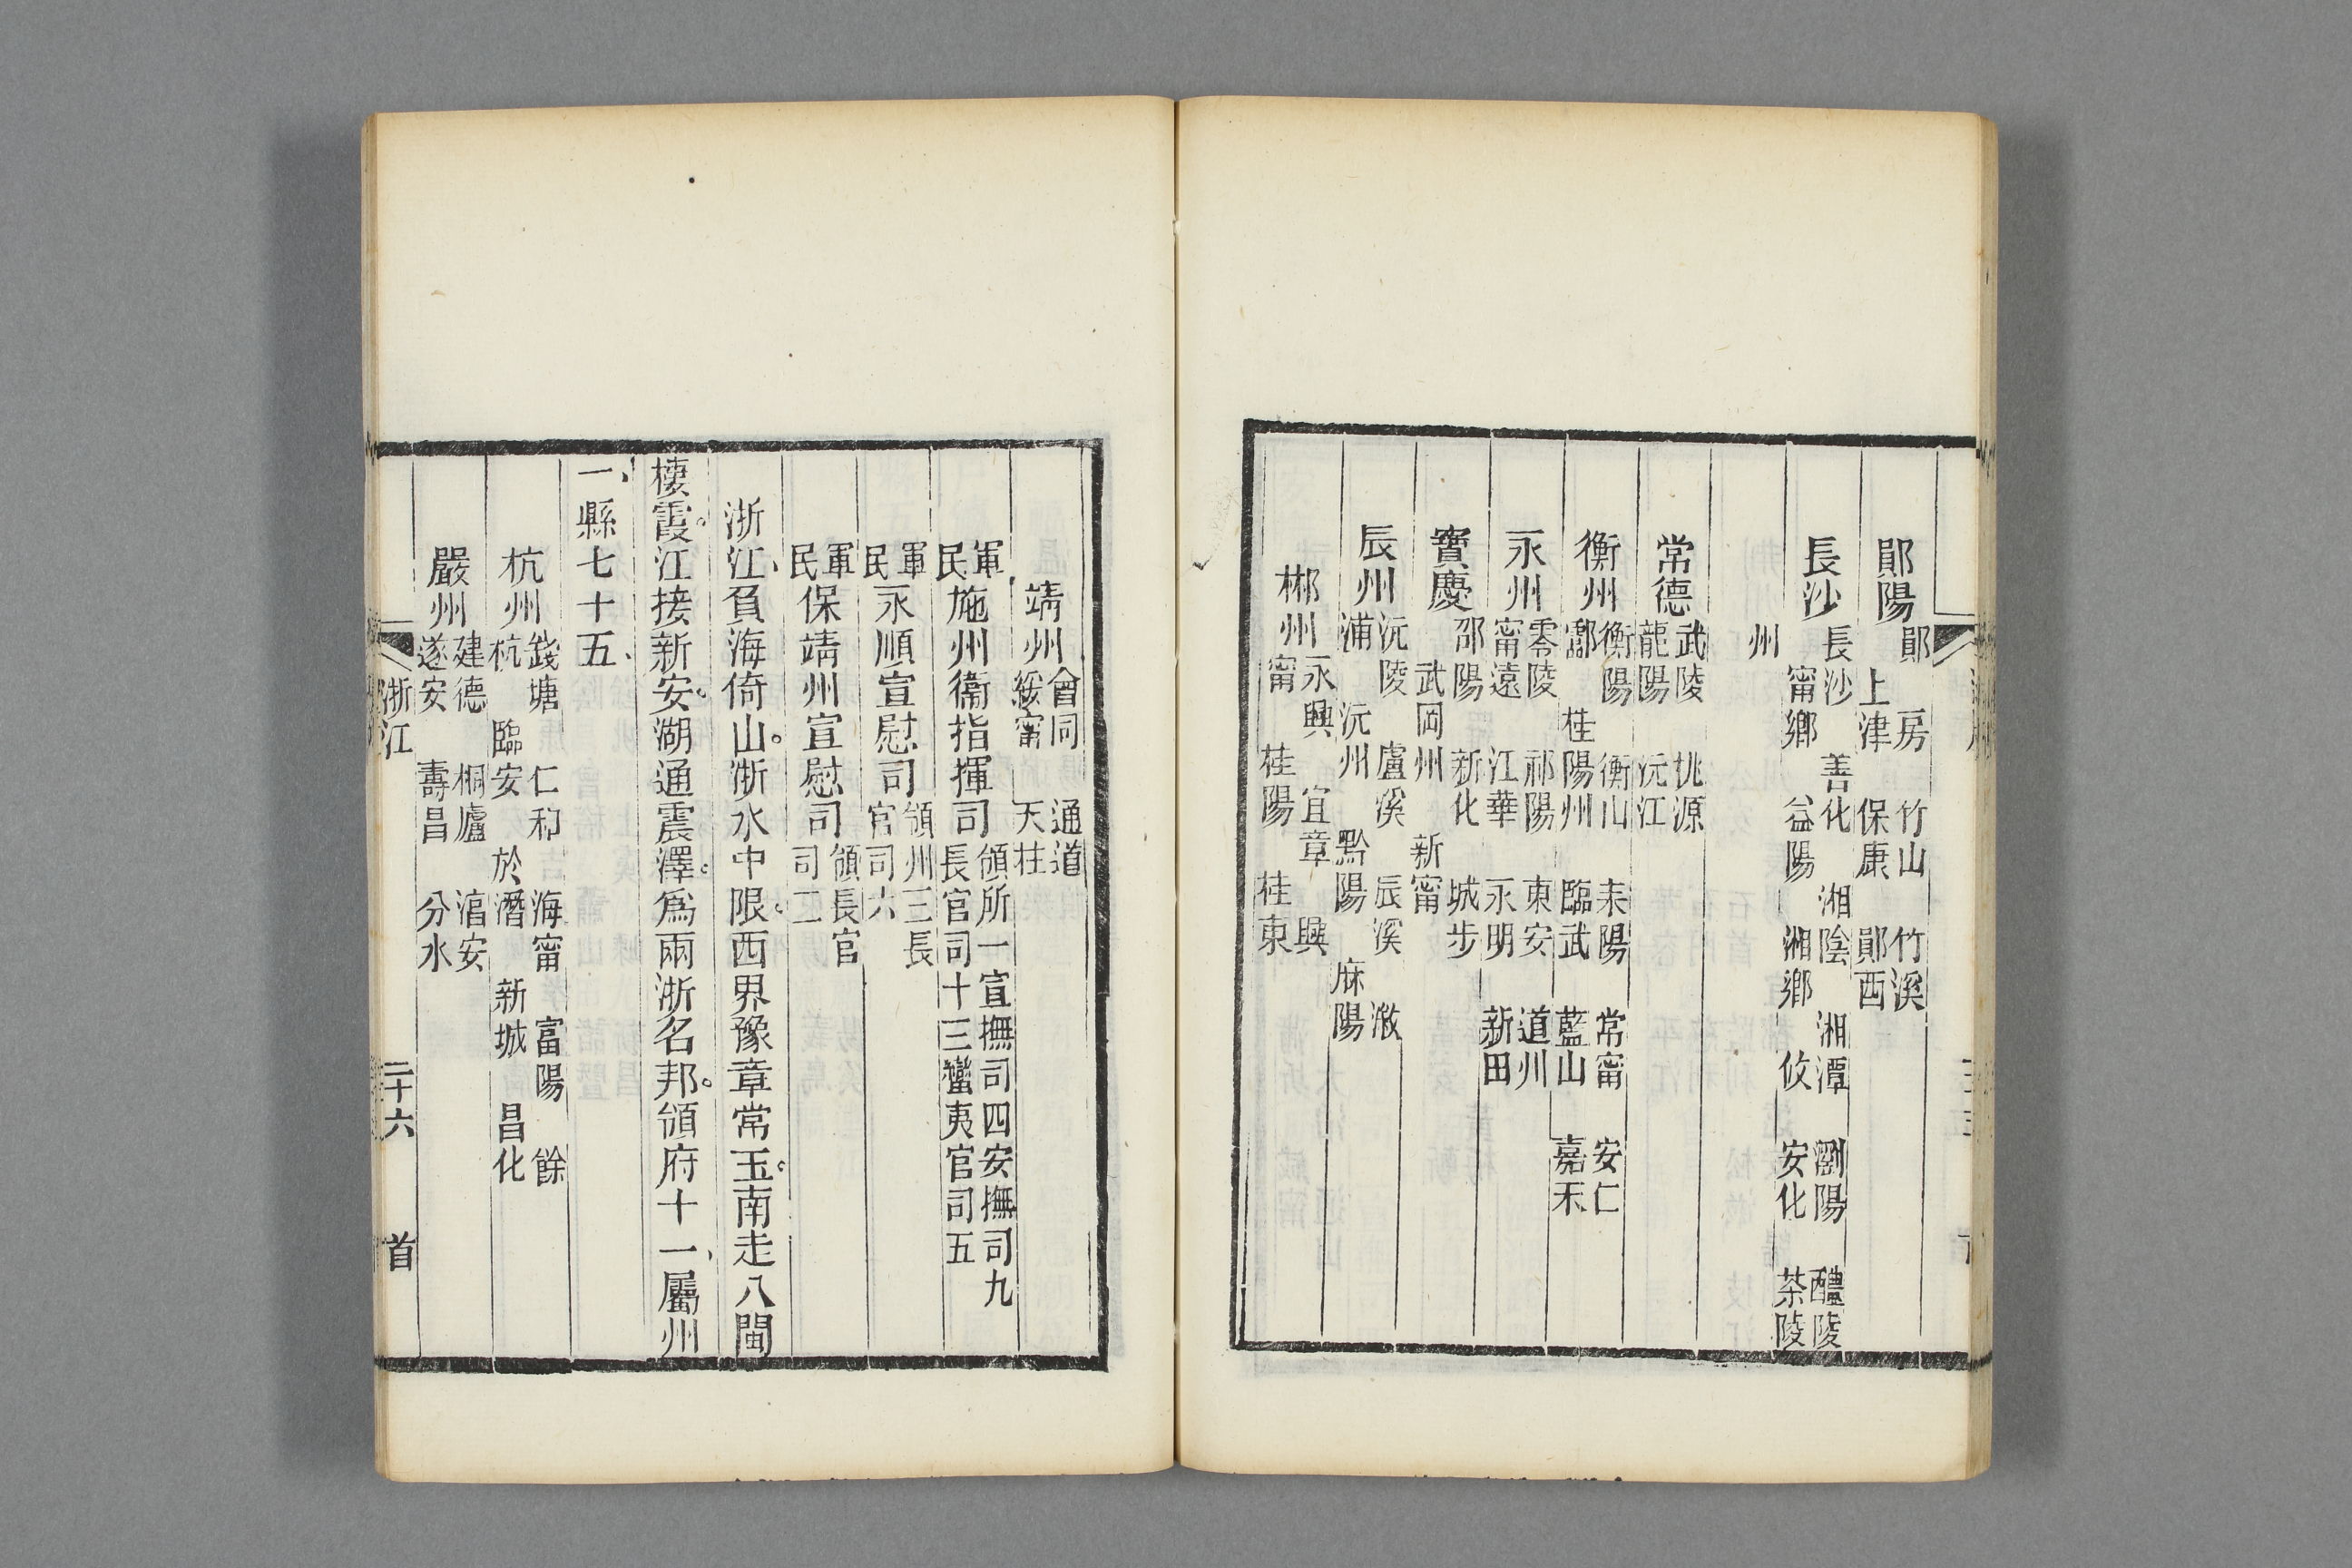 鄖陽 鄖 房 竹山 竹溪
上津 保康 鄖西
長沙 長沙 善化 湘陰 湘潭 瀏陽 醴陵
甯鄉 益陽 湘鄉 攸 安化 茶陵
州
常德 武陵 桃源
龍陽 沅江
衡州 衡陽 衡山 耒陽 常甯 安仁
酃 桂陽州 臨武 藍山 嘉禾
永州 零陵 祁陽 東安 道州
甯遠 江華 永明 新田
寶慶 邵陽 新化 城步
武岡州 新甯
辰州 沅陵 盧溪 辰溪 漵
浦 沅州 黔陽 麻陽
郴州 永興 宜章 興
甯 桂陽 桂東
靖州 會同 通道
綏甯 天柱
軍民施州衞指揮司 領所一宣撫司四安撫司九
長官司十三蠻夷官司五
軍民永順宣慰司 領州三長
官司六
軍民保靖州宣慰司 領長官
司二
浙江、負海倚山。浙水中限。西界豫章常玉。南走八閩
棲霞。江接新安。湖通震澤。爲兩浙名邦。領府十一、屬州
一、縣七十五、
杭州 錢塘 仁和 海甯 富陽 餘
杭 臨安 於潛 新城 昌化
嚴州 建德 桐廬 湻安
遂安 壽昌 分水
浙江 二十六 首